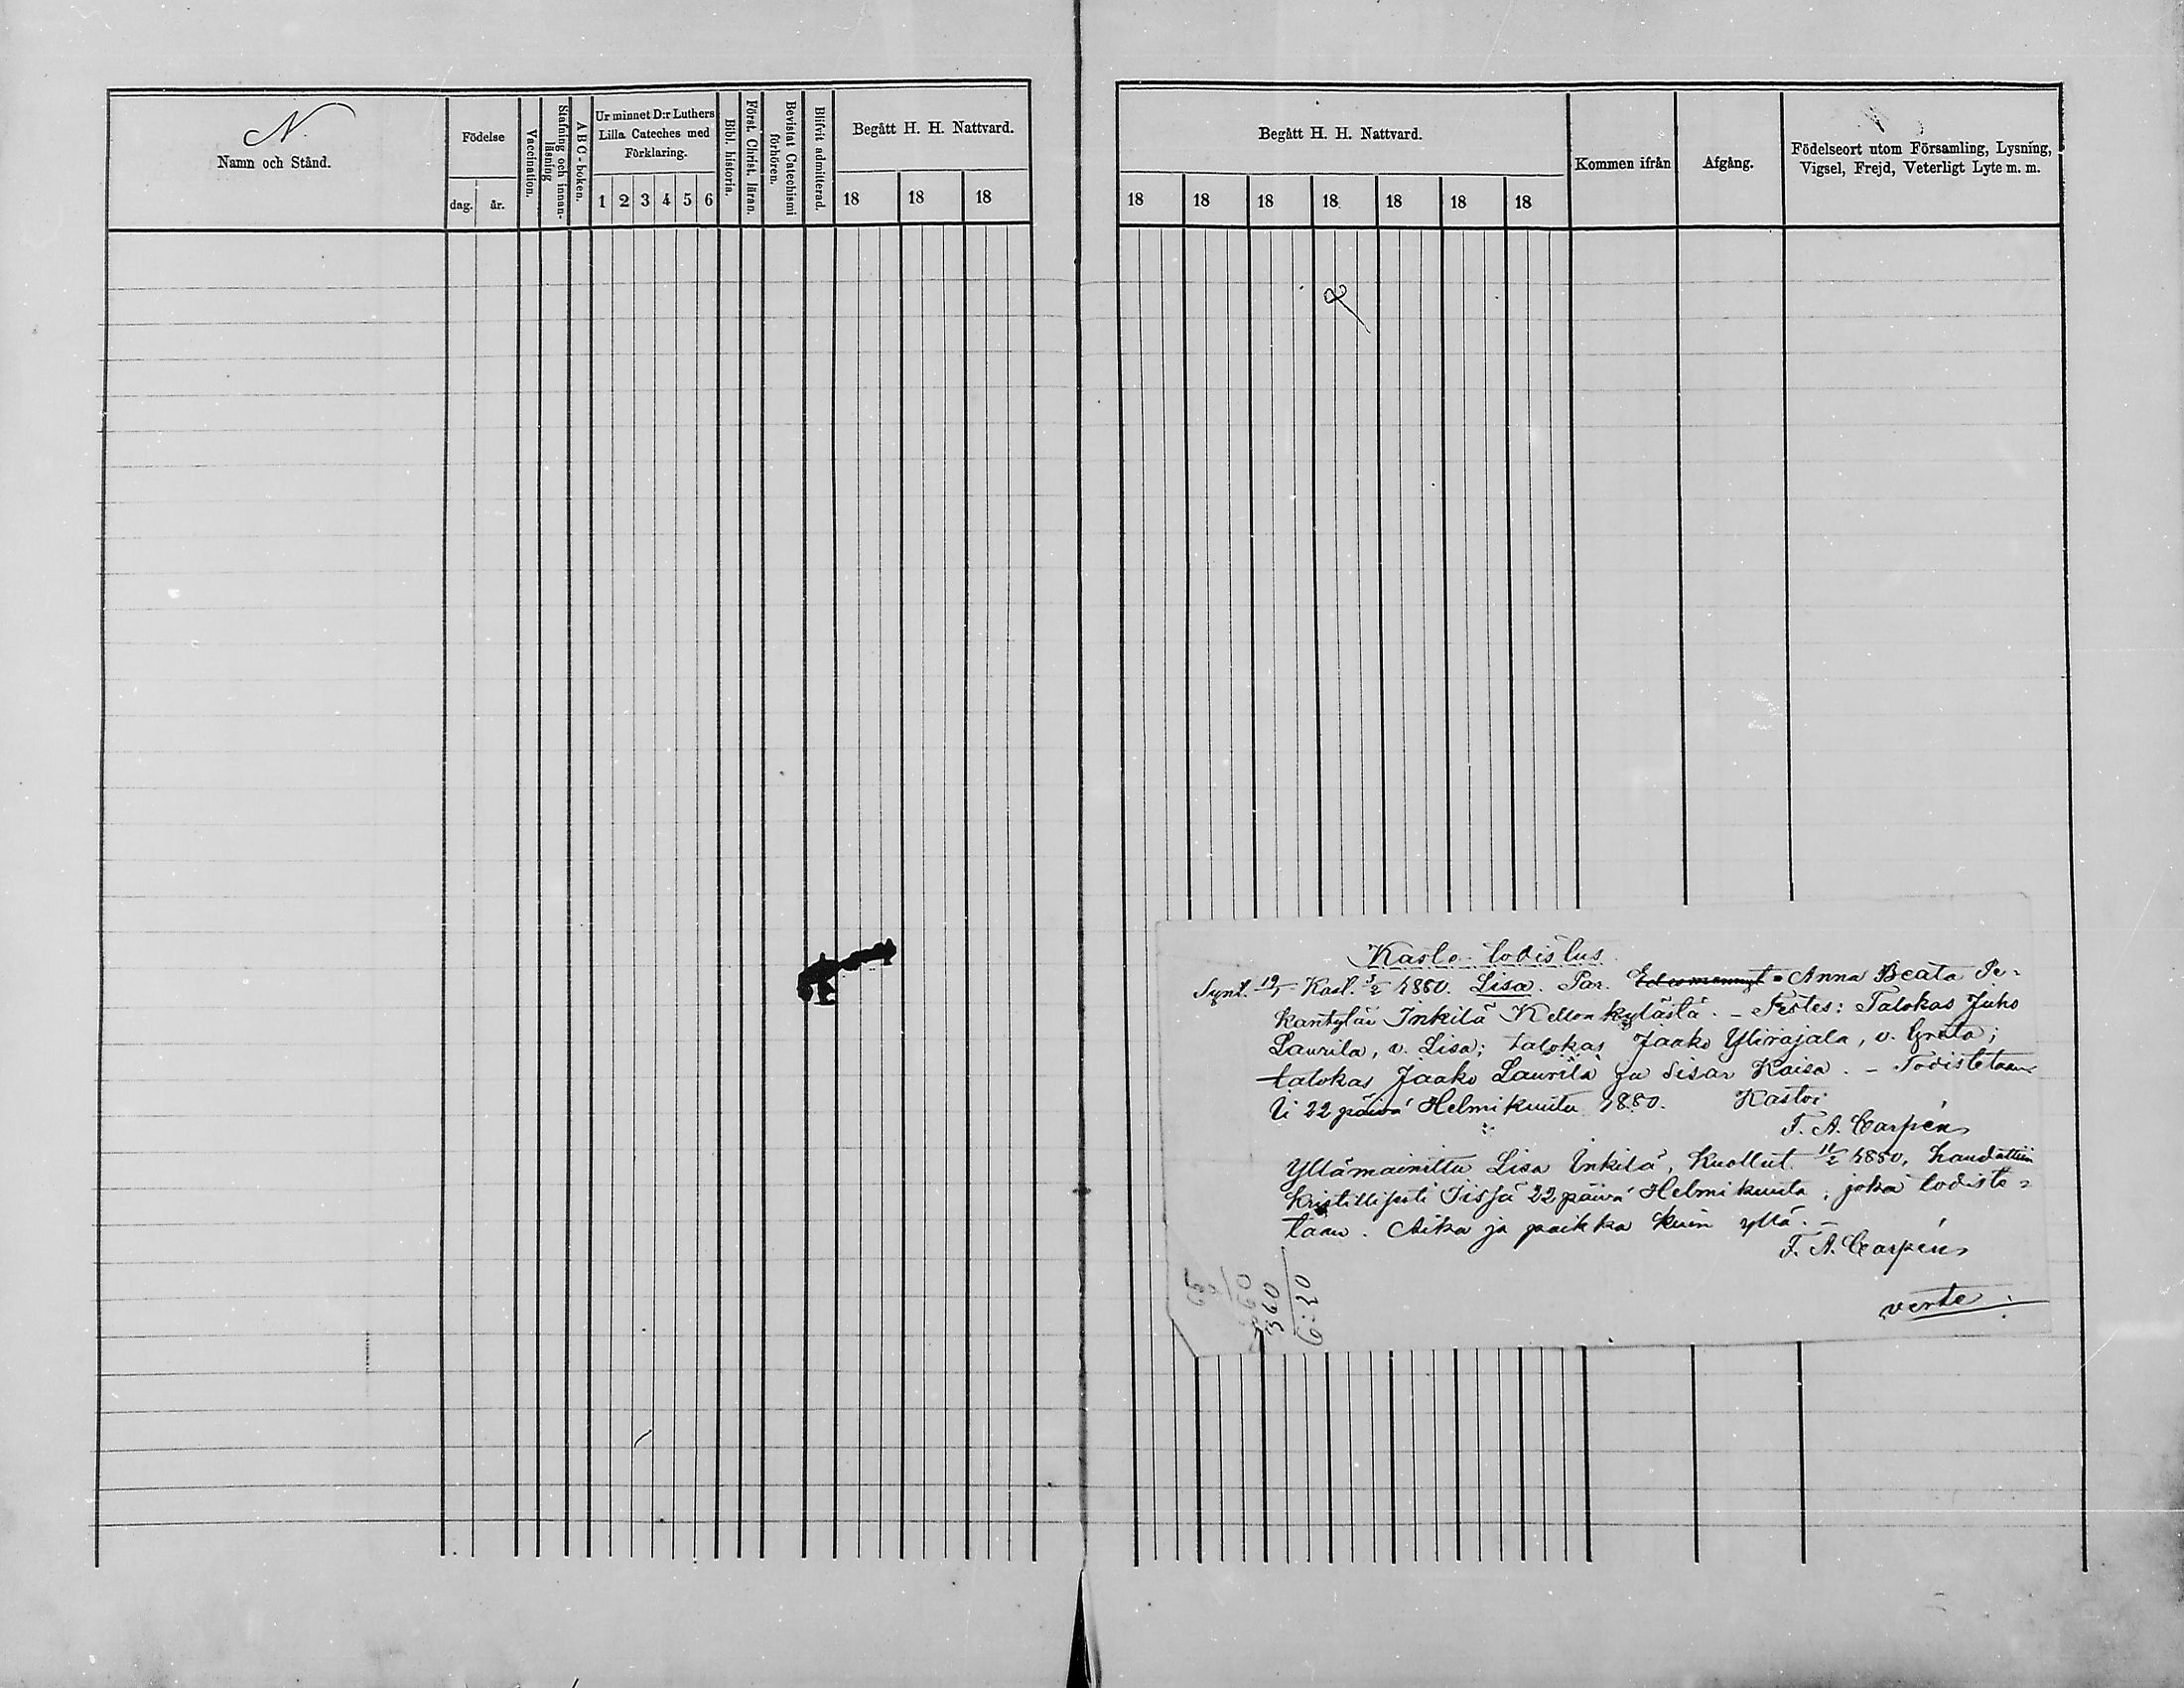 N.
Namn och Stånd.
Födelse
dag.
år.
Vaccination.
Stafning och innan-
läsning
ABC-boken.
Ur minnet D:r Luthers
Lilla Cateches med
Förklaring.
1 2 3 4 5 6
Bibl. historia.
Först. Christ. läran.
Bevistat Catechismi
förhören.
Blifvit admitterad.
Begått H. H. Nattvard.
18 18 18
Begått H. H. Nattvard.
18 18 18 18 18 18 18
Kommen ifrån
Afgång.
Födelseort utom Församling, Lysning,
Vigsel, Frejd, Veterligt Lyte m. m.
Kaste-todistus
Synt. 19/1 Kast. 3/2 1880. Lisa. Par. Anna Beata Pe-
kantytär Inkilä Kellon kylästä. – Testes: Talokas Juho
Laurila, v. Lisa; talokas Jaako Ylirajala, v. Greta;
talokas Jaako Laurila ja sisar Kaisa. – Todistetaan
Ii 22 päivä Helmikuuta 1880. Kastoi
F. A. Carpén
Yllämainittu Lisa Inkilä, Kuollut 11/2 1880, haudattiin
Kristillisesti Iissä 22 päivä Helmikuuta, joka todiste-
taan. Aika ja paikka kuin yllä. –
F. A. Carpén
verte.
360
6:20